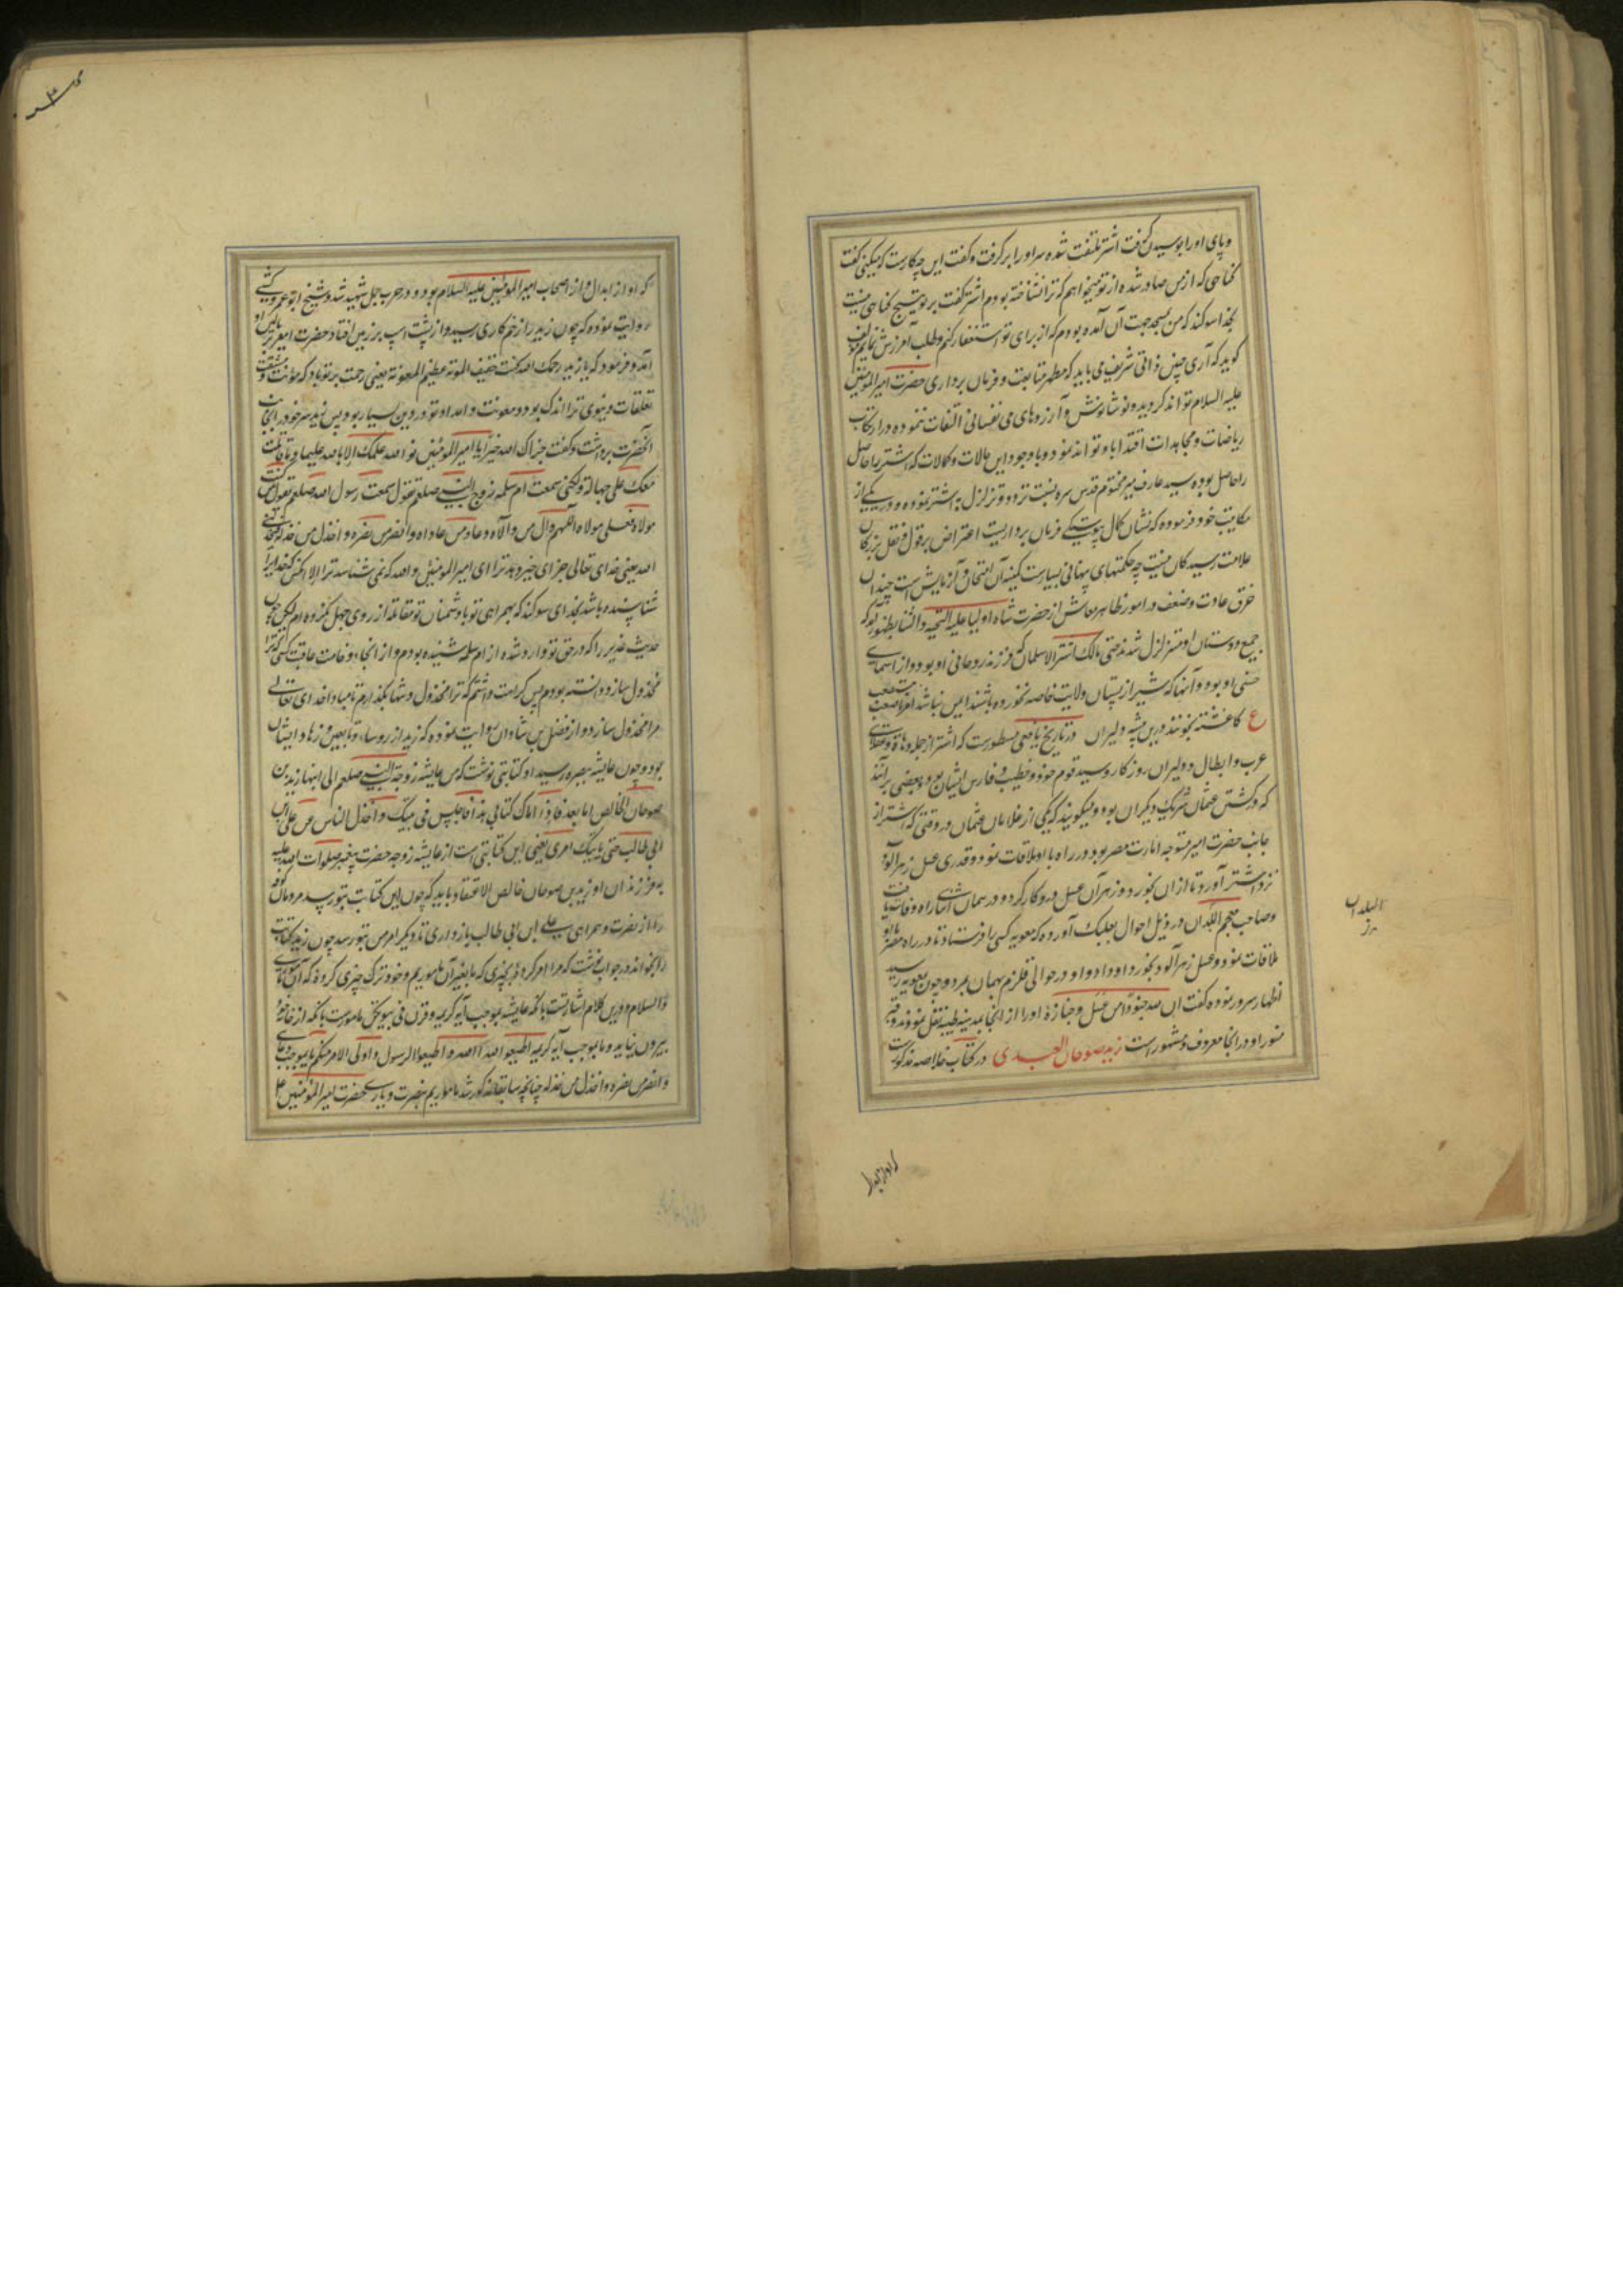 وپای اورا بوسیدن گرفت اشتر ملتفت شده سر اورا برگرفت و گفت این چه کارست که میکنی گفت
گناهی که از من صادر شده از تو میخواهم که ترا نشناخته بودم اشتر گفت بر تو هیچ گناهی نیست
بخدا سوگند که من بمسجد جهت آن آمده بودم که از برای تو استغفار کنم و طلب آمرزش نمایم مولف
گوید که آری چنین ذاتی شریف می باید که مظهر متابعت و فرمان برداری حضرت امیر المومنین
علیه السلام تواند گردید و نوشانوش و آرزوهای نفسانی التفات ننموده در ارتکاب
ریاضات و مجاهدات اقتدا باو تواند نمود و با وجود این حالات و کمالات که اشتر را حاصل
را حاصل بوده سید عارف میر مختوم قدس سره نسبت تردد و تزلزل به اشتر نموده و در یکی از
مکاتیب خود فرموده که نشان کمال چیست یکی فرمان برداریست اعتراض بر قول و فعل بزرگان
علامت رسیدگان نیست چه حکمتهای پنهانی بسیارست کمینه آن امتحان و آزمایش است چندان
خرق عادت و ضعف در امور ظاهر معاش از حضرت شاه اولیا علیه التحیه و الثنا بظهور آمد که
جمیع دوستان او متزلزل شدند حتی مالک اشتر الا سلمان که فرزند روحانی او بود و از اسمای
حسنی او بود و آنها که شیر از پستان ولایت خاصه نخورده باشند ایمن نباشند امر ما صعب مستصعب
ع کاغشته بخونند درین بیشه دلیران در تاریخ یافعی مسطورست که اشتر از جمله دهاة و عقلای
عرب و ابطال و دلیران روزگار و سید قوم خود و خطیب و فارس ایشان بود و بعضی برآنند
که در کشتن عثمان شریک دیگران بود و میگویند که یکی از غلامان عثمان در وقتی که اشتر از
جانب حضرت امیر متوجه امارت مصر بود در راه با او ملاقات نمود و قدری عسل زهر آلود
نزد اشتر آورد تا از آن بخورد و زهر آن عسل درو کار کرد و در همان اثنای راه وفات یافت
وصاحب معجم البلدان در ذیل احوال بعلبک آورده که معویه کسی را فرستاد تا در راه مصر با او
ملاقات نمود و عسل زهر آلود بخورد او داد و او در حوالی قلزم بهمان بمرد و چون بمعویه رسید
اظهار سرور نموده گفت ان لله جنودا من عسل و جنازهٔ او را از انجا بمدینه طیبه نقل نمودند و قبر
منور او در انجا معروف و مشهور است زید صوحان العبدی در کتاب خلاصه مذکورست
البلدان
که او از ابدال
که او از ابدال و از اصحاب امیر المومنین علیه السلام بود و در حرب جمل شهید شد و شیخ ابو عمرو کشی
روایت نموده که چون زید را زخم کاری رسید و از پشت اسپ بر زمین افتاد حضرت امیر بر بالین او
آمد و فرمود که یا زید رحمک الله کنت خفیف المئونه عظیم المعونه یعنی رحمت بر تو باد که مؤنت و مشقت
تعلقات دنیوی ترا اندک بود و معونت و امداد تو در دین بسیار بود پس زید سر خود را بجانب
آنحضرت برداشت و گفت جزاک الله خیرا یا امیر المومنین فو الله علمتک الا بالله علیما و ما قاتلت
معک علی جهالة ولکنی سمعت ام سلمه زوج النبی صلعم تقول سمعت رسول الله صلعم یقول من کنت
مولاه فعلی مولاه اللهم وال من والاه و عاد من عاداه وانصر من نصره واخذل من خذله یعنی
الله یعنی خدای تعالی جزای خیر دهد ترا ای امیر المومنین و الله که نمی شناسد ترا الا آنکس که خدایرا
شناسنده باشد بخدای سوگند که بهمراهی تو با دشمنان تو مقاتله از روی جهل نکرده ام لیکن چون
حدیث غدیر را که در حق تو وارد شده از ام سلمه شنیده بودم و از انجا وخامت عاقبت کسی که ترا
مخذول سازد دانسته بودم پس کراهت داشتم که ترا مخذول و تنها بگذارم تا مبادا خدای تعالی
مرا مخذول سازد و از فضل بن شاذان روایت نموده که زید از روساء تابعین و زهاد ایشان
بود و چون عایشه ببصره رسید او کتابتی نوشت که من عایشه زوجة النبی صلعم الی ابنها زید بن
صوحان الخالص اما بعد فاذا اتاک کتابی هذا فاجلس فی بیتک واخذل الناس عن علی بن
ابی طالب حتی یاتیک امری یعنی این کتابتی است از عایشه زوجه حضرت پیغمبر صلوات الله علیه
به فرزند او زید بن صوحان خالص الاعتقاد باید که چون این کتابت بتو رسد مردمان کوفه
را از نصرت و همراهی علی ابن ابی طالب باز داری تا دیگر امر من بتو رسد چون زید کتابت
را بخواند در جواب نوشت که مرا امر کرده بچیزی که ما بغیر آن ماموریم و خود ترک چیزی کرده که آن ماموری
والسلام و درین کلام اشارتست بآنکه عایشه بموجب آیه کریمه وقرن فی بیوتکن مامورست بآنکه از خانه خود
بیرون نیاید و ما بموجب آیه کریمه اطیعوا الله و اطیعوا الرسول و اولی الامر منکم و بموجب دعای
وانصر من نصره واخذل من خذله چنانچه سابقا مذکور شد ماموریم بنصرت و یاری حضرت امیر المومنین علی